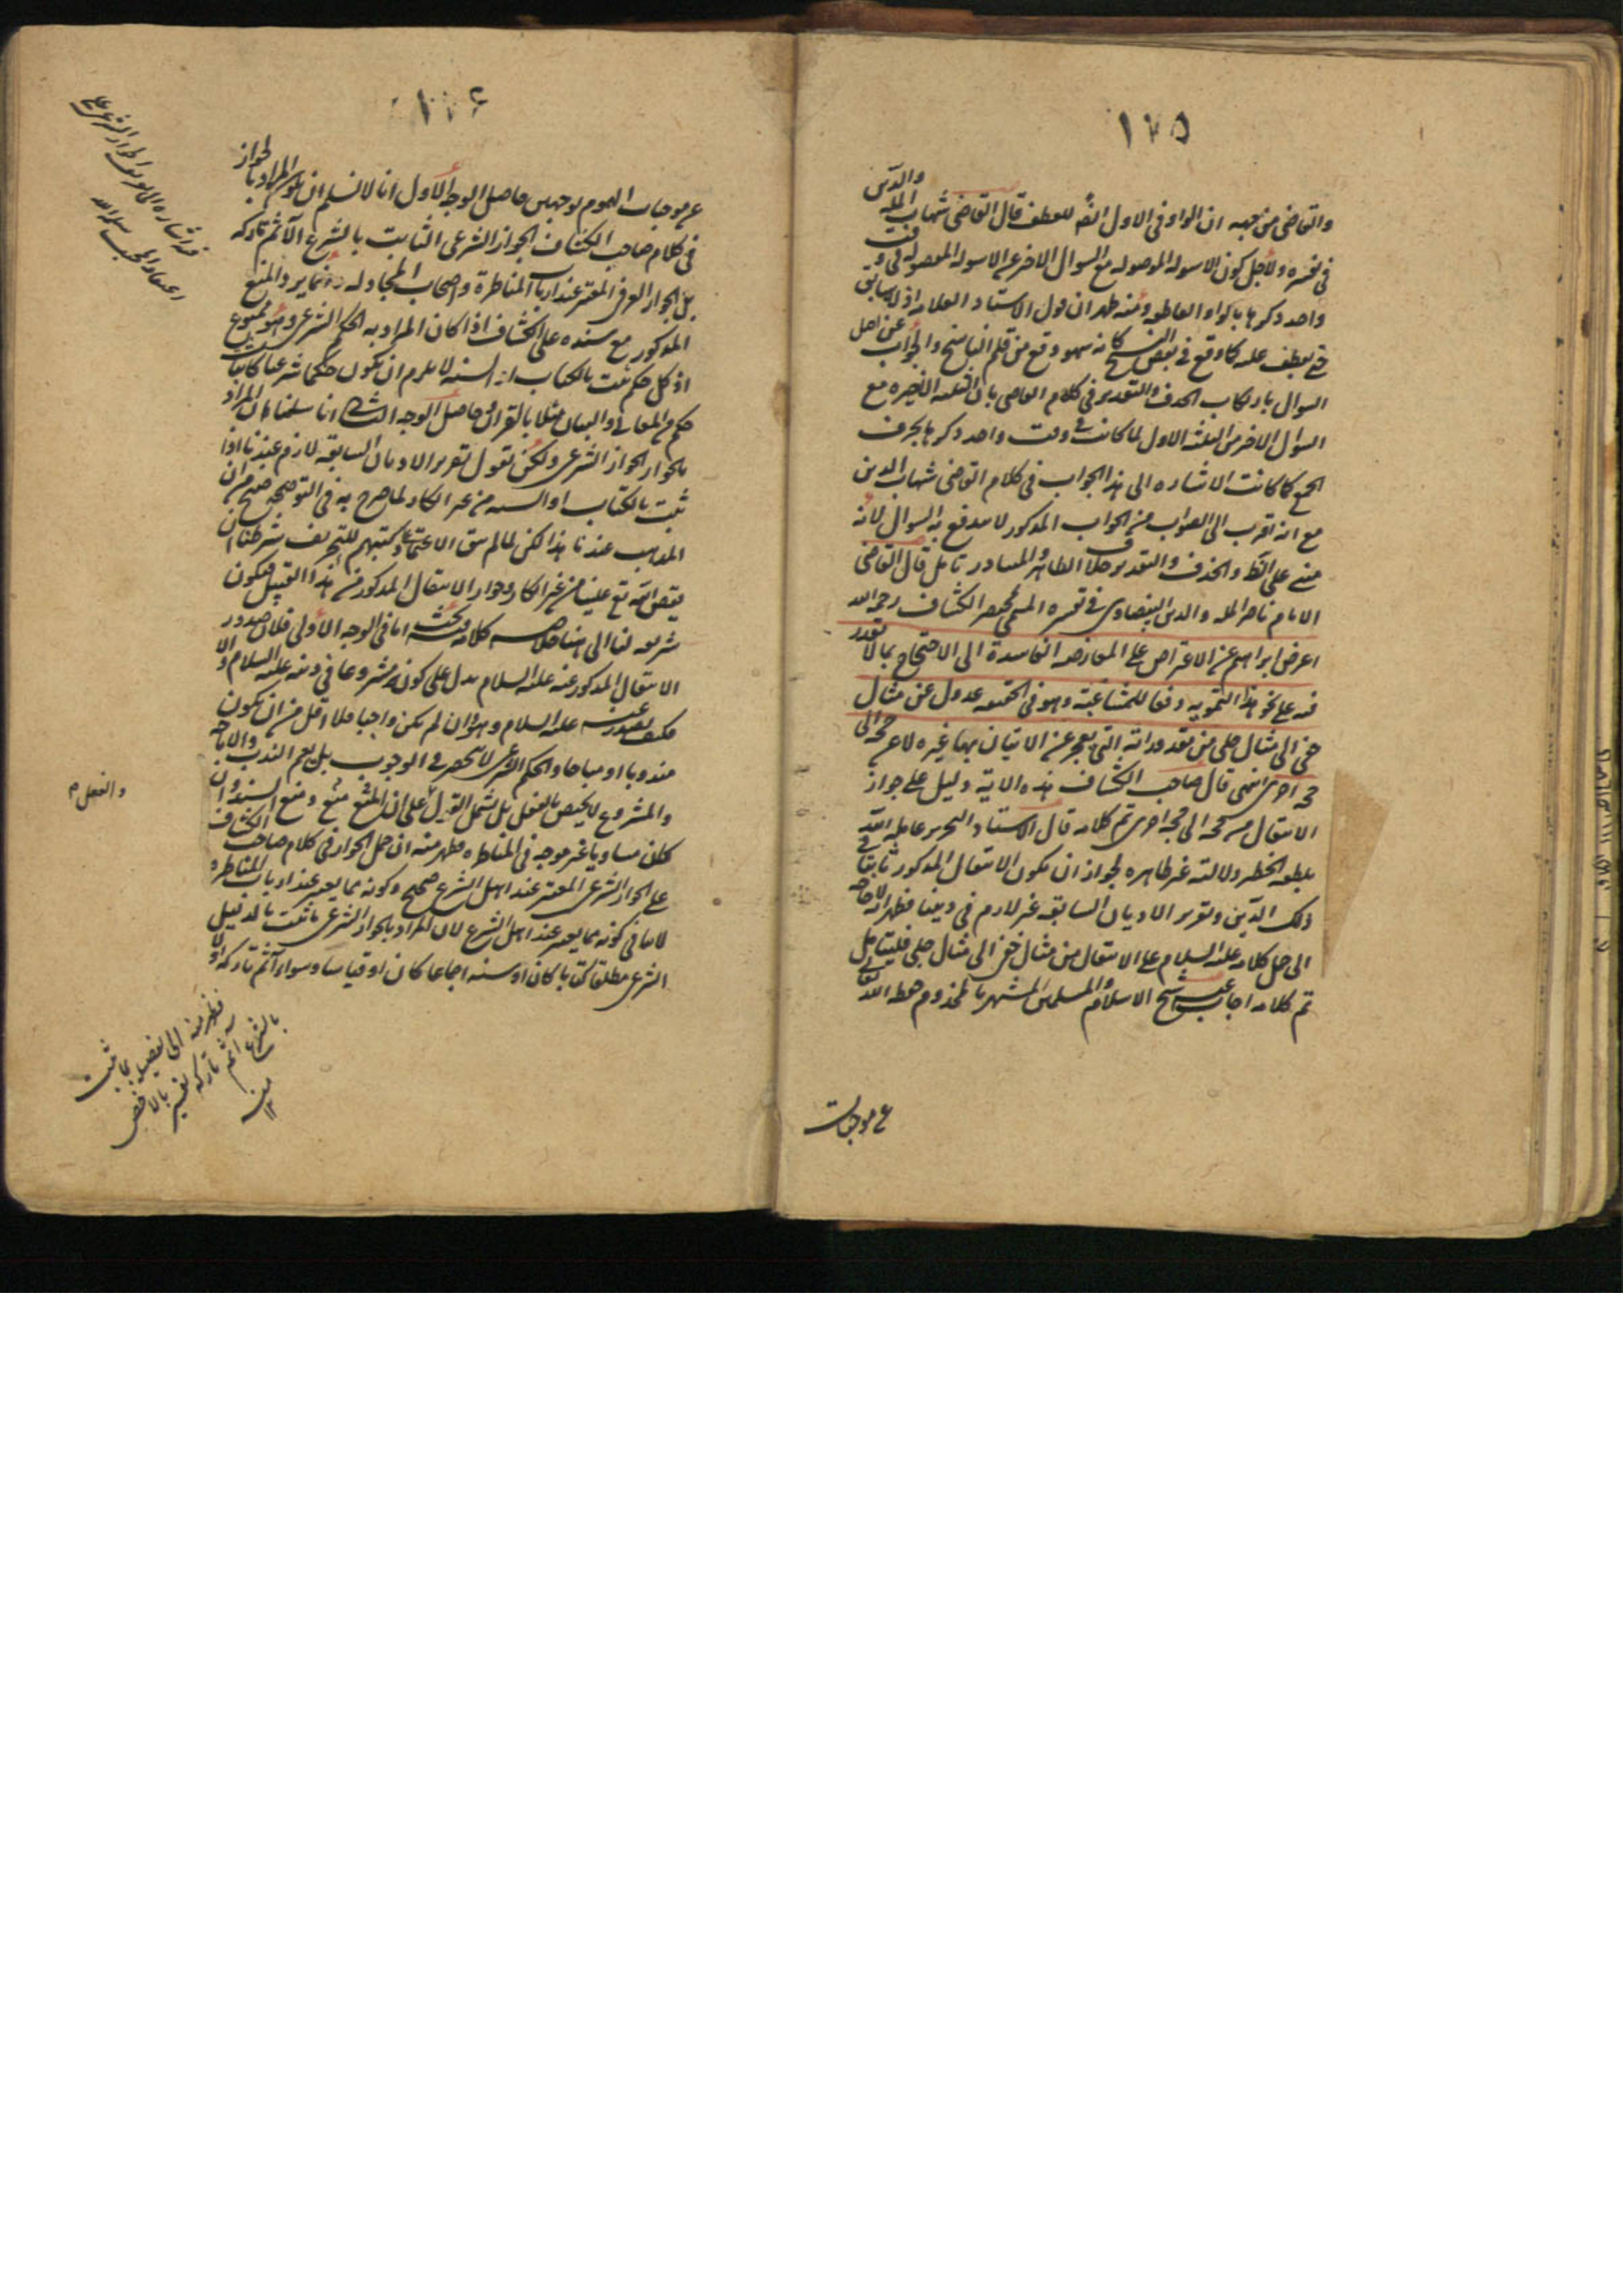 ١٢٥
والقاضى من جهة ان الواو فى الاول ايضا للعطف قال القاضى شهاب الملة والدين
فى تفسيره ولاجل كون الاسولة الموصولة مع السوال الاخر عن الاسولة المفصولة فى وقت
واحد ذكرها بالواو العاطفة ومنه ظهر ان قول الاستاد العلامة اذ لا سابق
حتى يعطف عليه كما وقع فى بعض النسخ كانه سهو وقع من قلم الناسخ والجواب عن اصل
السوال بارتكاب الحذف والتقدير فى كلام القاضى بان الثلثة الاخيرة مع
السوال الاخر من الثلثة الاول لما كانت فى وقت واحد ذكرها بحرف
الجمع كما كانت الاشارة الى هذا الجواب فى كلام القاضى شهاب الدين
مع انه اقرب الى الصواب من الجواب المذكور لا يندفع به السوال لانه
مبنى على والحذف والتقدير خلاف الظاهر والمتبادر تامل قال القاضى
الامام ناصر الملة والدين البيضاوى فى تفسيره المسمى بمختصر الكشاف رحمه الله
اعرض ابراهيم عن الاعتراض على المعارضة الفاسدة الى الاحتجاج بما لا تقدر
فيه على نحو هذا التمويه دفعا للمشاغبة وهو فى الحقيقة عدول عن مثال
خفى الى مثال جلى من مقدوراته التى يعجز عن الاتيان بها غيره لا عن حجة الى
حجة اخرى انتهى قال صاحب الكشاف هذه الاية دليل على جواز
الانتقال من حجة الى حجة اخرى تم كلامه قال الاستاد النحرير عامله الله
بلطفه الخطير دلالته غير ظاهرة لجواز ان يكون الانتقال المذكور ثابتا فى
ذلك الدين وتقرير الاديان السابقة غير لازم فى ديننا فظهر انه لا حاجة
الى حمل كلامه عليه السلام على الانتقال من مثال خفى الى مثال جلى فليتامل
تم كلامه اجاب عنه شيخ الاسلام والمسلمين المشتهر بالمخدوم حفظه الله تعالى
عن موجبات
١٢٦
عن موجبات الهموم بوجهين حاصل الوجه الاول انا لا نسلم ان يكون المراد بالجواز
فى كلام صاحب الكشاف الجواز الشرعى الثابت بالشرع الآثم تاركه
بل الجواز العرفى المعتبر عند ارباب المناظرة واصحاب المجادلة وانما يرد المنع
المذكور مع سنده على الكشاف اذا كان المراد به الحكم الشرعى وهو ممنوع
اذ كل حكم ثبت بالكتاب او السنة لا يلزم ان يكون حكما شرعيا كما ثبت
حكم من المعانى والبيان مثلا بالقران وحاصل الوجه الثانى انا سلمنا ان المراد
بالجواز الجواز الشرعى ولكن نقول تقرير الاديان السابقة لازم عندنا اذا
ثبت بالكتاب او السنة من غير انكار لما صرح به فى التوضيح
المذهب عندنا هذا لكن لما لم يبق الاعتماد على كتبهم للتحريف شرطنا ان
يقص الله تع علينا من غير انكار وجواز الانتقال المذكور من هذا القبيل فيكون
شريعة لنا الى هنا خلاصة كلامه وفيه بحث اما فى الوجه الاول فلان صدور
الانتقال المذكور عنه عليه السلام يدل على كونه مشروعا فى دينه عليه السلام والا
فكيف يصدر عنه عليه السلام وهو ان لم يكن واجبا فلا اقل من ان يكون
مندوبا او مباحا والحكم الشرعى لا ينحصر فى الوجوب بل يعم الندب والاباحة
والمشروع لا يختص بالفعل بل يشمل القول على ان المنع منع ومنع السند وان
كان مساويا غير موجه فى المناظرة فظهر منه ان حمل الجواز فى كلام صاحب الكشاف
على الجواز الشرعى المعتبر عند اهل الشرع صحيح وكونه مما يعتبر عند ارباب المناظرة
لا ينافى كونه مما يعتبر عند اهل الشرع لان المراد بالجواز الشرعى ما ثبت بالدليل
الشرعى مطلقا كتابا كان او سنة اجماعا كان او قياسا وسواء آثم تاركه او لا
فيه اشارة الى
سلمه الله
والفعل م
فظهر منه الى تفسير ما ثبت
بالشرع آثم تاركه تفسير بالاخص
منه
١٢